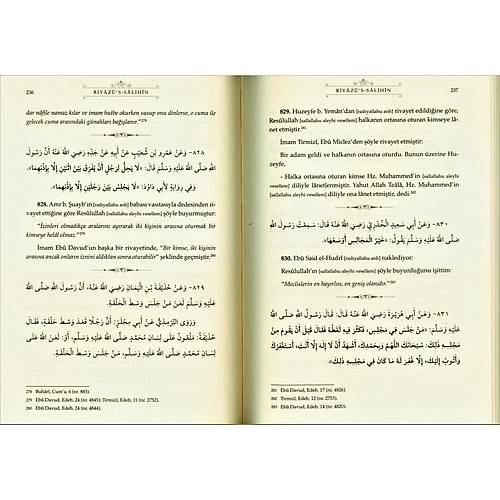 236
RİYÂZÜ'S-SÂLİHÎN
dar nâfile namaz kılar ve imam hutbe okurken susup onu dinlerse, o cuma ile
gelecek cuma arasındaki günahları bağışlanır."278
٨٢٨- وَعَنْ عَمْرِو بْنِ شُعَيْبٍ عَنْ أَبِيهِ عَنْ جَدِّهِ رَضِيَ اللهُ عَنْهُ أَنَّ رَسُولَ
اللهِ صَلَّى اللهُ عَلَيْهِ وَسَلَّمَ قَالَ: «لَا يَحِلُّ لِرَجُلٍ أَنْ يُفَرِّقَ بَيْنَ اثْنَيْنِ إِلَّا بِإِذْنِهِمَا».
وَفِي رِوَايَةٍ لِأَبِي دَاوُدَ: «لَا يَجْلِسُ بَيْنَ رَجُلَيْنِ إِلَّا بِإِذْنِهِمَا».
828. Amr b. Şuayb'ın [radıyallahu anh] babası vastasıyla dedesinden ri-
vayet ettiğine göre Resûlullah [sallallahu aleyhi vesellem] şöyle buyurmuştur:
"İzinleri olmadıkça aralarını ayırarak iki kişinin arasına oturmak bir
kimseye helâl olmaz."
İmam Ebû Davud'un başka bir rivayetinde, "Bir kimse, iki kişinin
arasına ancak onların iznini aldıktan sonra oturabilir" şeklinde geçmiştir.279
٨٢٩- وَعَنْ حُذَيْفَةَ بْنِ الْيَمَانِ رَضِيَ اللهُ عَنْهُ، أَنَّ رَسُولَ اللهِ صَلَّى اللهُ
عَلَيْهِ وَسَلَّمَ لَعَنَ مَنْ جَلَسَ وَسَطَ الْحَلْقَةِ.
وَرَوَى التِّرْمِذِيُّ عَنْ أَبِي مِجْلَزٍ: أَنَّ رَجُلًا قَعَدَ وَسَطَ حَلْقَةٍ، فَقَالَ
حُذَيْفَةُ: مَلْعُونٌ عَلَى لِسَانِ مُحَمَّدٍ صَلَّى اللهُ عَلَيْهِ وَسَلَّمَ، أَوْ: لَعَنَ اللهُ عَلَى
لِسَانِ مُحَمَّدٍ صَلَّى اللهُ عَلَيْهِ وَسَلَّمَ، مَنْ جَلَسَ وَسَطَ الْحَلْقَةِ.
278 Buhârî, Cum'a, 6 (nr. 883).
279 Ebû Davud, Edeb, 24 (nr. 4845); Tirmizî, Edeb, 11 (nr. 2752).
280 Ebû Davud, Edeb, 24 (nr. 4844).
RİYÂZÜ'S-SÂLİHÎN
237
829. Huzeyfe b. Yemân'dan [radıyallahu anh] rivayet edildiğine göre,
Resûlullah [sallallahu aleyhi vesellem] halkanın ortasına oturan kimseye lâ-
net etmiştir.
İmam Tirmizî, Ebû Miclez'den şöyle rivayet etmiştir:
Bir adam geldi ve halkanın ortasına oturdu. Bunun üzerine Hu-
zeyfe,
- Halka ortasına oturan kimse Hz. Muhammed'in [sallallahu aleyhi
vesellem] diliyle lânetlenmiştir. Yahut Allah Teâlâ, Hz. Muhammed'in
[sallallahu aleyhi vesellem] diliyle ona lânet etmiştir, dedi.
٨٣٠- وَعَنْ أَبِي سَعِيدٍ الْخُدْرِيِّ رَضِيَ اللهُ عَنْهُ قَالَ: سَمِعْتُ رَسُولَ
اللهِ صَلَّى اللهُ عَلَيْهِ وَسَلَّمَ يَقُولُ: «خَيْرُ الْمَجَالِسِ أَوْسَعُهَا».
830. Ebû Said el-Hudrî [radıyallahu anh] naklediyor:
Resûlullah'ın [sallallahu aleyhi vesellem] şöyle buyurduğunu işittim:
"Meclislerin en hayırlısı, en geniş olanıdır."
٨٣١- وَعَنْ أَبِي هُرَيْرَةَ رَضِيَ اللهُ عَنْهُ قَالَ: قَالَ رَسُولُ اللهِ صَلَّى اللهُ
عَلَيْهِ وَسَلَّمَ: «مَنْ جَلَسَ فِي مَجْلِسٍ، فَكَثُرَ فِيهِ لَغَطُهُ فَقَالَ قَبْلَ أَنْ يَقُومَ مِنْ
مَجْلِسِهِ ذَلِكَ: سُبْحَانَكَ اللَّهُمَّ وَبِحَمْدِكَ، أَشْهَدُ أَنْ لَا إِلَهَ إِلَّا أَنْتَ، أَسْتَغْفِرُكَ
وَأَتُوبُ إِلَيْكَ؛ إِلَّا غُفِرَ لَهُ مَا كَانَ فِي مَجْلِسِهِ ذَلِكَ».
281 Ebû Davud, Edeb, 17 (nr. 4826).
282 Tirmizî, Edeb, 12 (nr. 2753).
283 Ebû Davud, Edeb, 14 (nr. 4820).